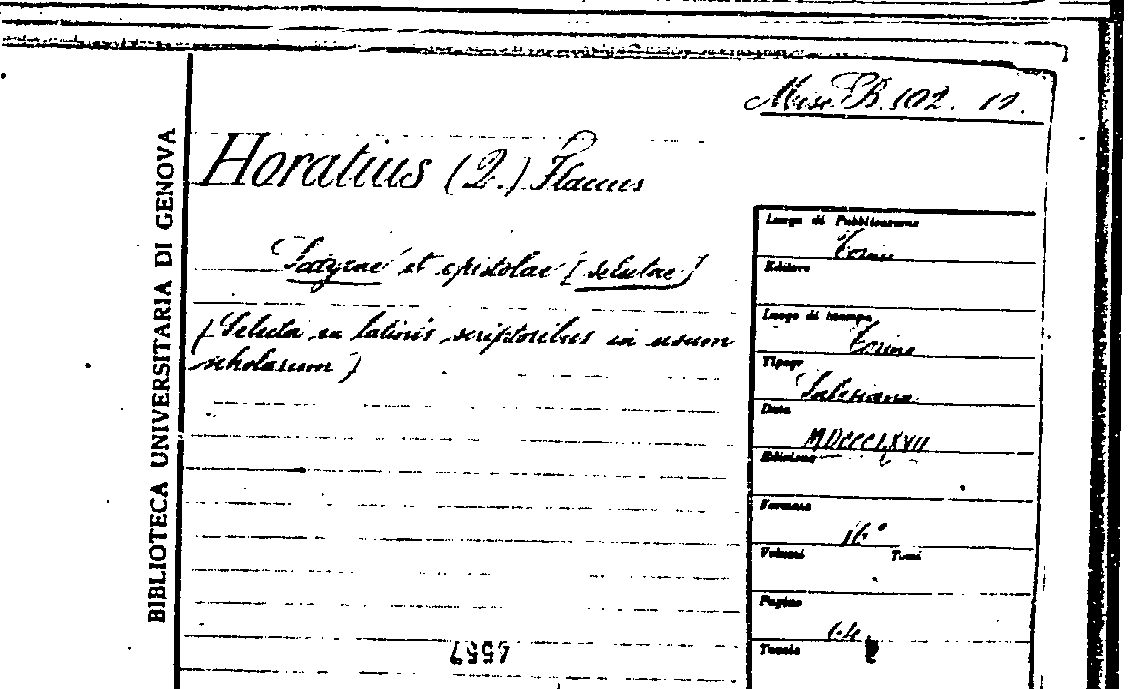 Misc. B. 102. 11.
Horatius (Q.) Flaccus
Satyrae et epistolae [selectae]
(Selecta ex latinis scriptoribus in usum
scholarum)
BIBLIOTECA UNIVERSITARIA DI GENOVA
Luogo di Pubblicazione
Torino
Editore
Luogo di stampa
Torino
Tipogr
Salesiana
Data
MDCCCLXVII
Edizione
Formato
16°
Volumi Tomi
Pagine
Tavole
4557